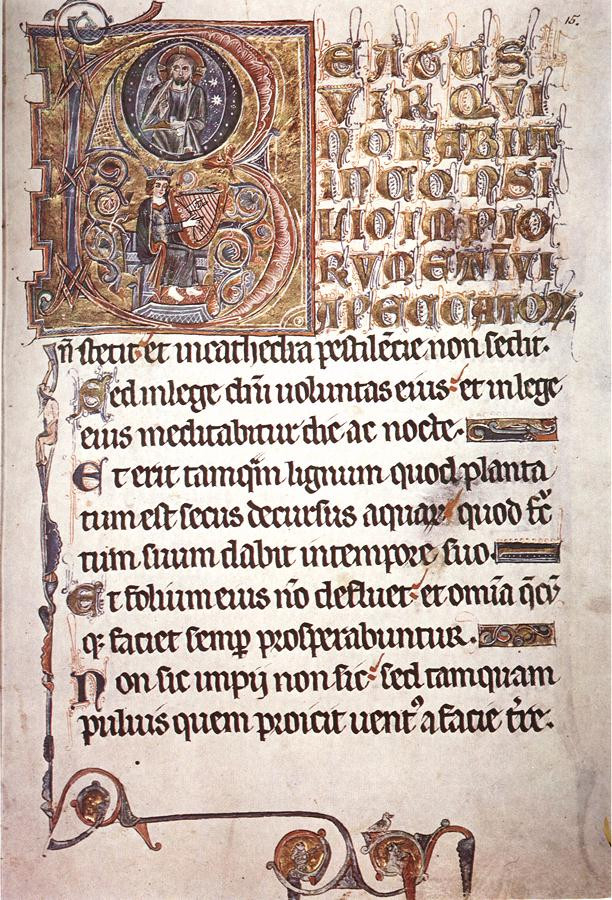 15.
BEATUS
VIR QVI
NON ABIIT
IN CONSI
LIO IMPIO
RVM ET IN VI
A PECCATOꝜ
n̄ stetit et in cathedra pestilēcie non sedit.
Sed in lege dn̄i uoluntas eius et in lege
eius meditabitur die ac nocte.
Et erit tamq̄m lignum quod planta
tum est secus decursus aquaꝝ quod fc̄
tum suum dabit in tempore suo.
Et folium eius nō defluet et om̄ia q̄cū
qꝫ faciet semꝑ prosperabuntur.
Non sic impij non sic sed tamquam
puluis quem proicit uentꝰ a facie tr̄e.